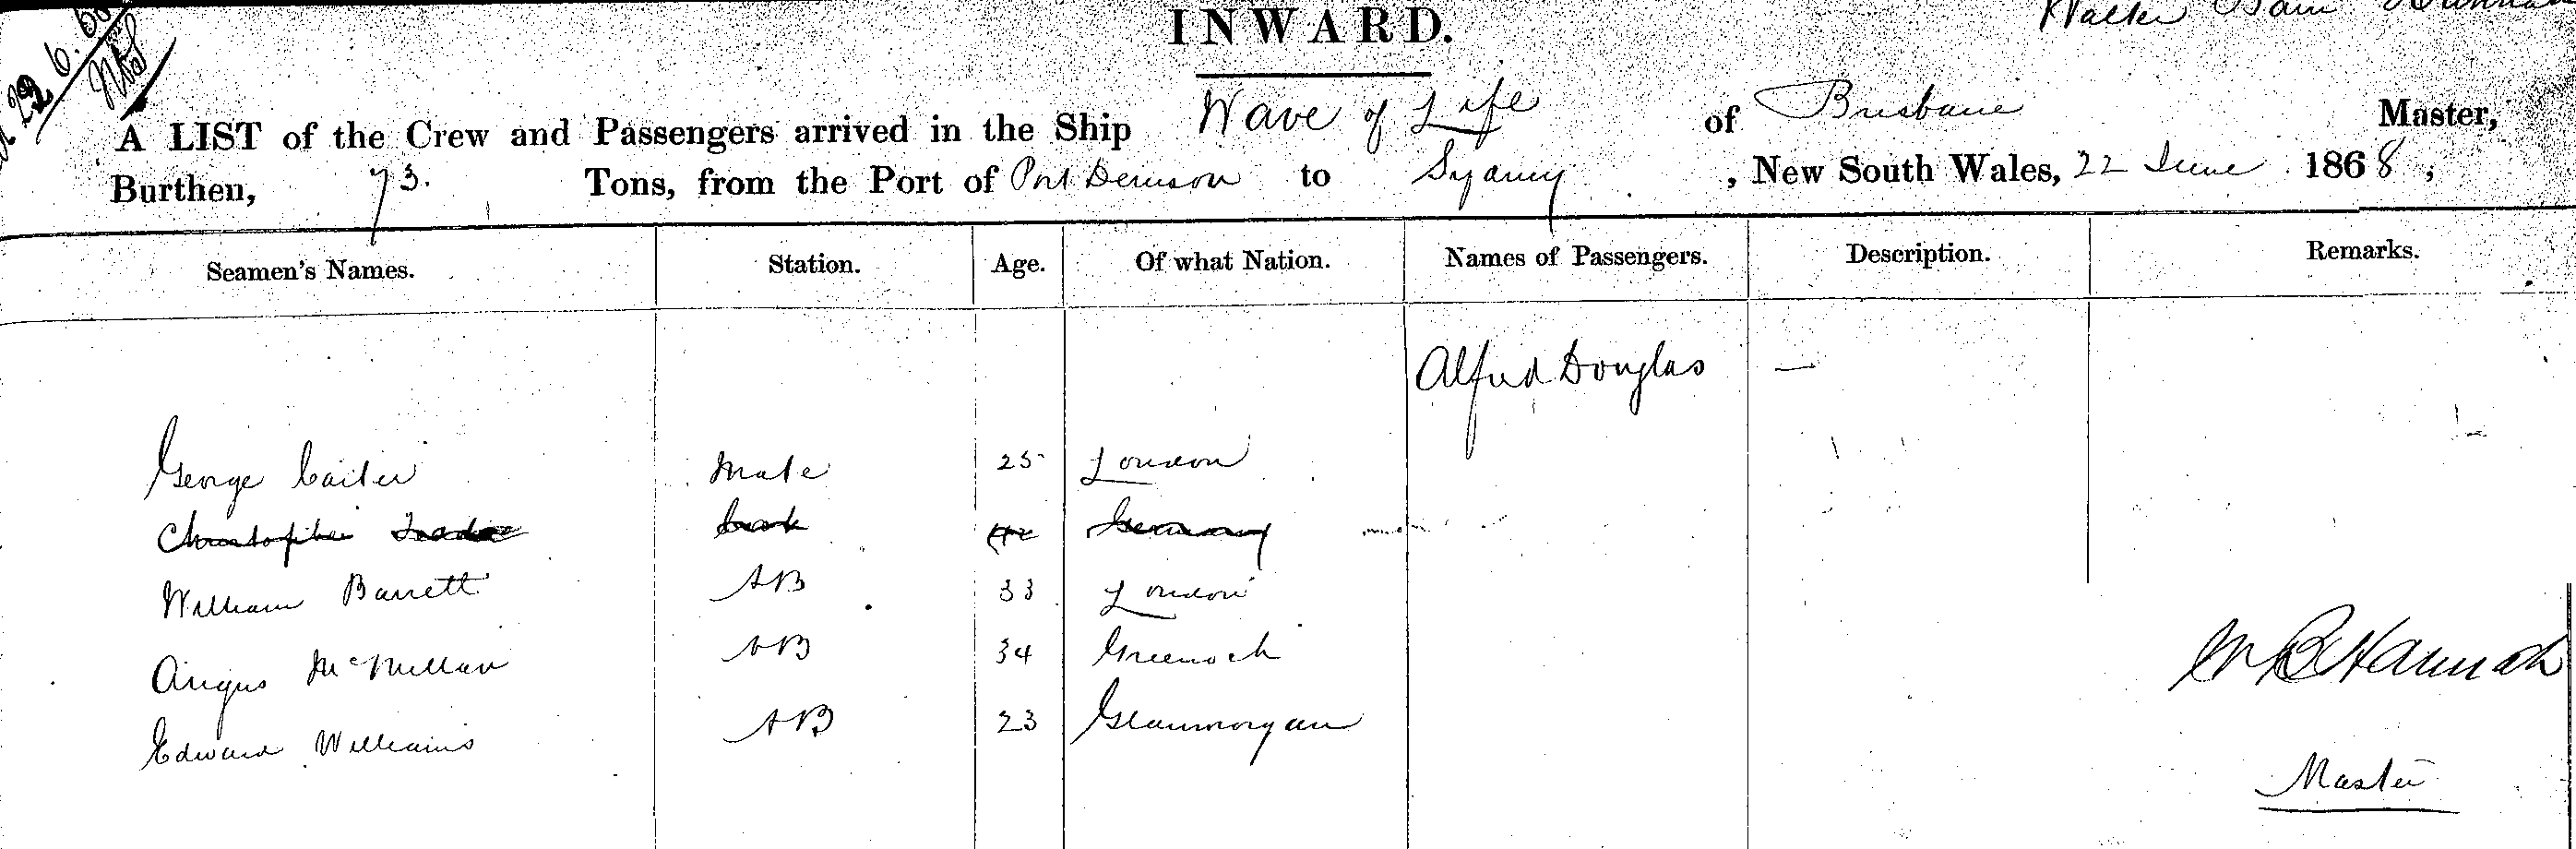 22. 6. 68
INWARD.
Walker Bain Hannah
A LIST of the Crew and Passengers arrived in the Ship Wave of Life of Brisbane Master,
Burthen, 73. Tons, from the Port of Port Denison to Sydney, New South Wales, 22 June 1868,
Seamen's Names. Station. Age. Of what Nation. Names of Passengers. Description. Remarks.
Alfred Douglas —
George Carter Mate 25 London
Christopher Cook 42 Germany
William Barrett AB 33 London
Angus McMillan AB 34 Greenock
Edward Williams AB 23 Glanmorgan
W B Hannah
Master